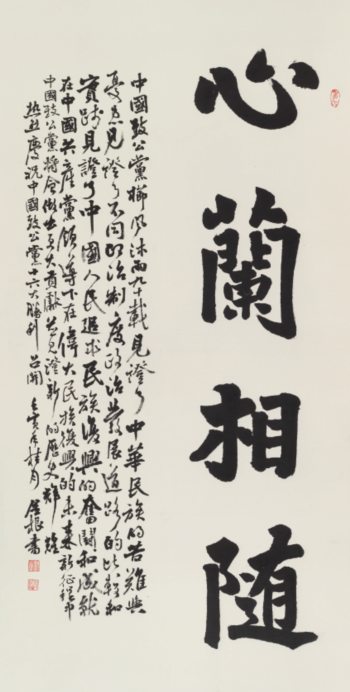 心蘭相随
中國致公黨櫛风沐雨九十載見證了中华民族的苦難與
憂患見證了不同政治制度政治發展道路的比較和
實踐見證了中國人民追求民族復興的奮鬪和成就
在中國共産黨領导下在偉大民族復興的未来新征程中
中國致公黨將会做出更大貢獻共見證新的歷史辉煌
热烈慶祝中國致公黨十六大勝利召開 壬寅年桂月